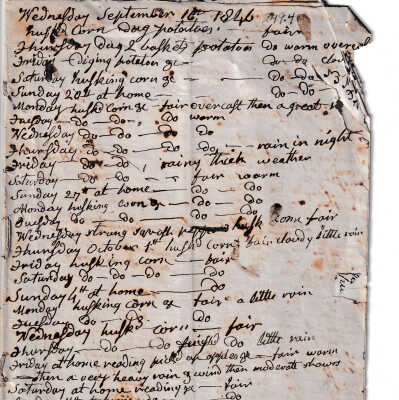 Wednesday September 16th 1846
husk corn dug potatoes. fair
Thursday Dag 2 baskets potatoes Do warm overcast
Friday digging potatoes &c Do Do
Saturday husking corn &c Do Do
Sunday 20th at home Do Do
Monday husk corn &c fair overcast then a great
Tuesday Do Do Do warm
Wednesday Do Do Do
Thursday Do Do Do rain in night
Friday Do Do rainy thick weather
Saturday Do Do fair warm
Sunday 27th at home Do Do
Monday husking corn &c Do Do
Tuesday Do Do Do Do
Wednesday strung squash husk corn fair
Thursday October 1st husk corn fair cloudy little rain
Friday husking corn fair
Saturday Do Do Do Do
Sunday 4th at home Do
Monday husking corn &c fair a little rain
Tuesday Do Do Do
Wednesday husk corn fair
Thursday Do Do finish Do little rain
Friday at home reading pick'd up apples &c fair warm
then a very heavy rain & wind then moderate showers
Saturday at home reading &c fair
Do Do Do